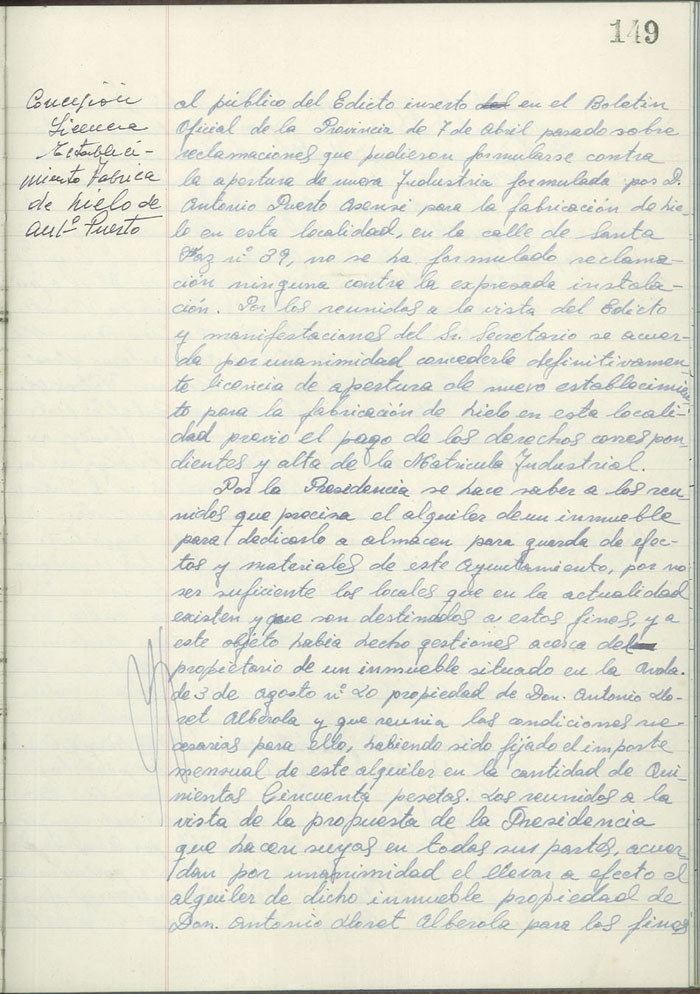 149
Concesión
Licencia
Estableci-
miento Fábrica
de hielo de
Antº Puerto
al público del Edicto inserto del en el Boletin
Oficial de la Provincia de 7 de Abril pasado sobre
reclamaciones que pudieron formularse contra
la apertura de nueva Industria formulada por D.
Antonio Puerto Asensi para la fabricación de hie-
lo en esta localidad, en la calle de Santa
Faz nº 39, no se ha formulado reclama-
ción ninguna contra la expresada instala-
ción. Por los reunidos a la vista del Edicto
y manifestaciones del Sr. Secretario se acuer-
da por unanimidad concederle definitivamen-
te licencia de apertura de nuevo establecimien-
to para la fabricación de hielo en esta locali-
dad previo el pago de los derechos correspon-
dientes y alta de la Matricula Industrial.
Por la Presidencia se hace saber a los reu-
nidos que precisa el alquiler de un inmueble
para dedicarlo a almacen para guarda de efec-
tos y materiales de este Ayuntamiento, por no
ser suficiente los locales que en la actualidad
existen y que son destinados a estos fines, y a
este objeto habia hecho gestiones acerca del
propietario de un inmueble situado en la Avda.
de 3 de Agosto nº 20 propiedad de Don. Antonio Llo-
ret Alberola y que reunia las condiciones ne-
cesarias para ello, habiendo sido fijado el importe
mensual de este alquiler en la cantidad de Qui-
nientos Cincuenta pesetas. Los reunidos a la
vista de la propuesta de la Presidencia
que hacen suyas en todas sus partes, acuer-
dan por unanimidad el llevar a efecto el
alquiler de dicho inmueble propiedad de
Don. Antonio Lloret Alberola para los fines